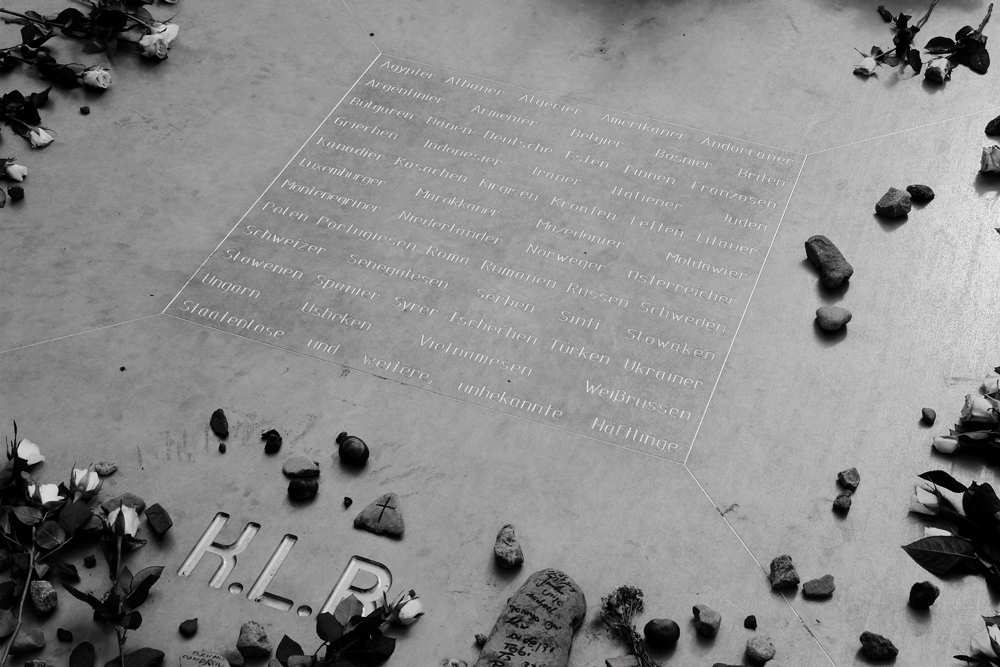 Ägypter Albaner Algerier Amerikaner Andorraner
Argentinier Armenier Belgier Bosnier Briten
Bulgaren Dänen Deutsche Esten Finnen Franzosen
Griechen Indonesier Iraner Italiener Juden
Kanadier Kasachen Kirgisen Kroaten Letten Litauer
Luxemburger Marokkaner Mazedonier Moldawier
Montenegriner Niederländer Norweger Österreicher
Polen Portugiesen Roma Rumänen Russen Schweden
Schweizer Senegalesen Serben Sinti Slowaken
Slowenen Spanier Syrer Tschechen Türken Ukrainer
Ungarn Usbeken Vietnamesen Weißrussen
Staatenlose und weitere, unbekannte Häftlinge
K.L.B